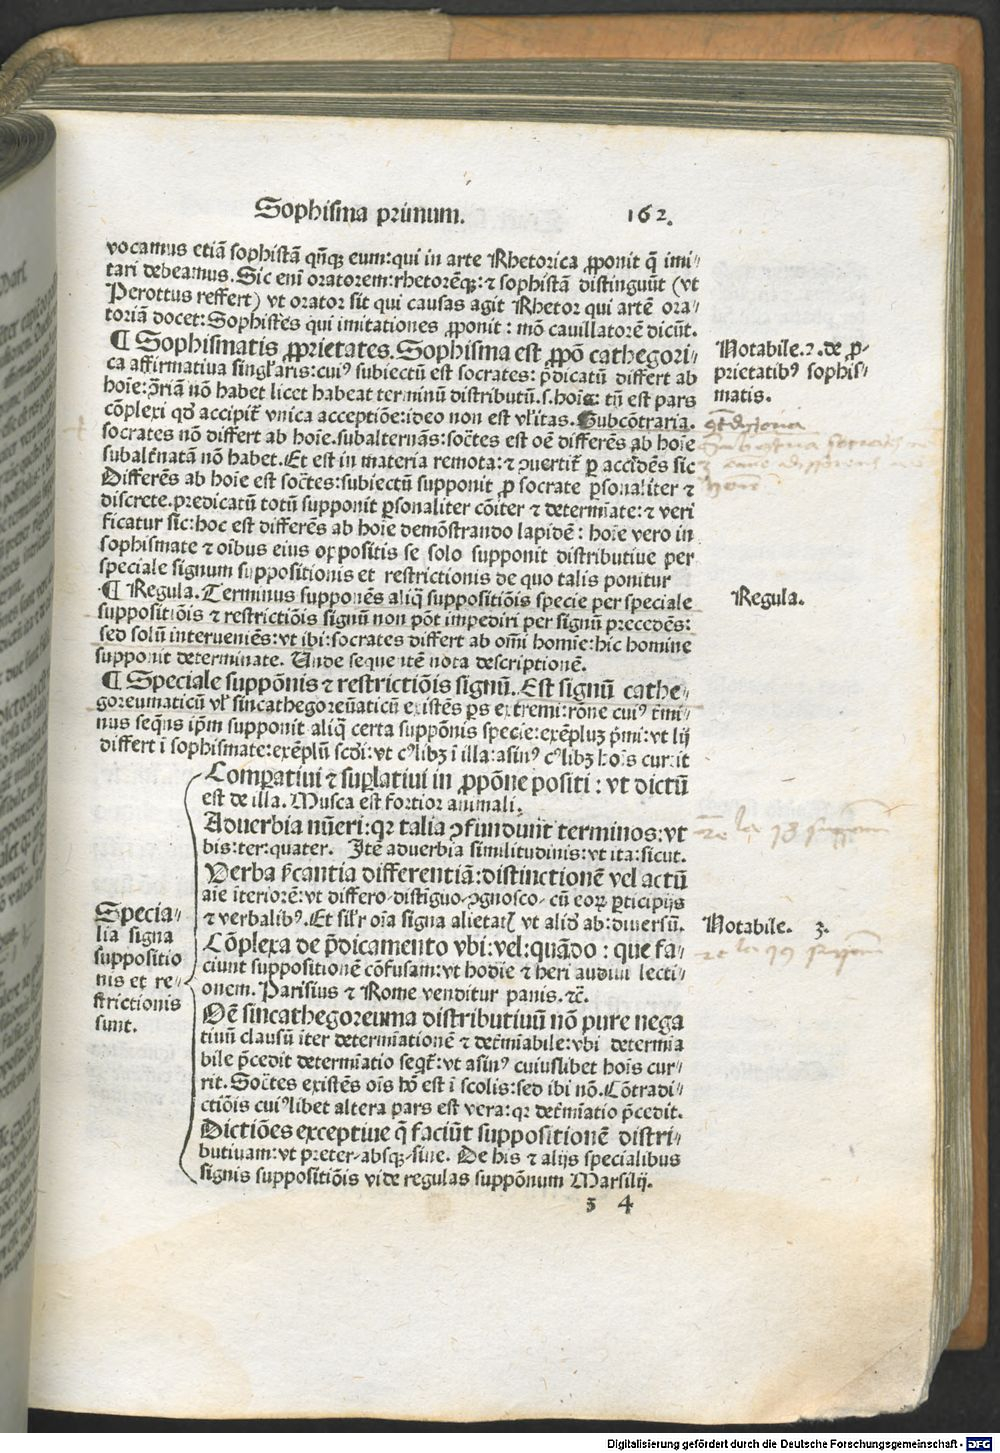 Sophisma primum. 162.
vocamus etiā sophistā qñqꝫ eum: qui in arte Rhetorica ꝓponit q̄ imi⸗
tari debeamus. Sic enī oratorem: rhetorēqꝫ: ⁊ sophistā distinguūt (vt
Perottus reffert) vt orator sit qui causas agit Rhetor qui artē ora⸗
toriā docet: Sophistes qui imitationes ꝓponit: mō cauillatorē dicūt.
¶ Sophismatis ꝓprietates. Sophisma est ꝓpō cathegori⸗
ca affirmatiua singl̄aris: cuiꝰ subiectū est socrates: p̄dicatū differt ab
hoīe: ꝯ̄riā nō habet licet habeat terminū distributū. s. hoīe: tn̄ est pars
cōplexi qd̄ accipit᷑ vnica acceptiōe: ideo non est vl̄itas. Subcōtraria.
socrates nō differt ab hoīe. subalternās: soc̄tes est oē differēs ab hoīe
subalt̄natā nō habet. Et est in materia remota: ⁊ ꝯuertit᷑ ꝑ accidēs sic
Differēs ab hoīe est soc̄tes: subiectū supponit ꝓ socrate ꝑsonaliter ⁊
discrete. predicatū totū supponit ꝑsonaliter cōiter ⁊ determīate: ⁊ veri
ficatur sic: hoc est differēs ab hoīe demōstrando lapidē: hoīe vero in
sophismate ⁊ oībus eius oppositis se solo supponit distributiue per
speciale signum suppositionis et restrictionis de quo talis ponitur
¶ Regula. Terminus supponēs aliq̄ suppositiōis specie per speciale
suppositiōis ⁊ restrictiōis signū non pōt impediri per signū p̄recedēs:
sed solū interueniēs: vt ibi: socrates differt ab omī homīe: hic homine
supponit determinate. Unde sequentē nota descriptionē.
¶ Speciale suppōnis ⁊ restrictiōis signū. Est signū cathe⸗
goreumaticū vl̓ sincathegoreūaticū existēs ꝑs extremi: rōne cuiꝰ t̓mi⸗
nus seq̄ns ip̄m supponit aliq̄ certa suppōnis specie: exēpluꝫ p̄mi: vt lij
differt ī sophismate: exēplū scd̓i: vt cꝰlibꝫ ī illa: asinꝰ cꝰlibꝫ hoīs currit
Comꝑatiui ⁊ suꝑlatiui in ꝓpōne positi: vt dictū
est de illa. Musca est fortior animali.
Aduerbia nūeri: qꝛ talia ꝯfundunt terminos: vt
bis: ter: quater. Itē aduerbia similitudinis: vt ita: sicut.
Verba p̄cantia differentiā: distinctionē vel actū
aīe īteriorē: vt differo⸗ distīguo⸗ ꝯgnosco⸗ cū eoꝝ ꝑticipijs
⁊ verbalibꝰ. Et sil̓r oīa signa alietatꝭ vt aliō ab: diuersū.
Cōplexa de p̄dicamento vbi: vel: quādo: que fa⸗
ciunt suppositionē cōfusam: vt hodie ⁊ heri audiui lecti⸗
onem. Parisius ⁊ Rome venditur panis. ⁊c̄.
Oē sincathegoreuma distributiuū nō pure nega
tiuū clausū īter determīationē ⁊ det̓mīabile: vbi determīa
bile p̄cedit determīatio seqt᷑: vt asinꝰ cuiuslibet hoīs cur⸗
rit. Soc̄tes existēs oīs hō est ī scolis: sed ibi nō. Cōtradi⸗
ctiōis cuiꝰlibet altera pars est vera: qꝛ det̓mīatio p̄cedit.
Dictiōes exceptiue q̄ faciūt suppositionē distri⸗
butiuam: vt preter⸗ absqꝫ⸗ siue. De his ⁊ alijs specialibus
signis suppositiōis vide regulas suppōnum Marsilij.
ʒ 4
Notabile. 2. de ꝓ⸗
prietatibꝰ sophis⸗
matis.
Regula.
Specia⸗
lia signa
suppositio
nis et re⸗
strictionis
sunt.
Notabile. 3.
Digitalisierung gefördert durch die Deutsche Forschungsgemeinschaft - DFG